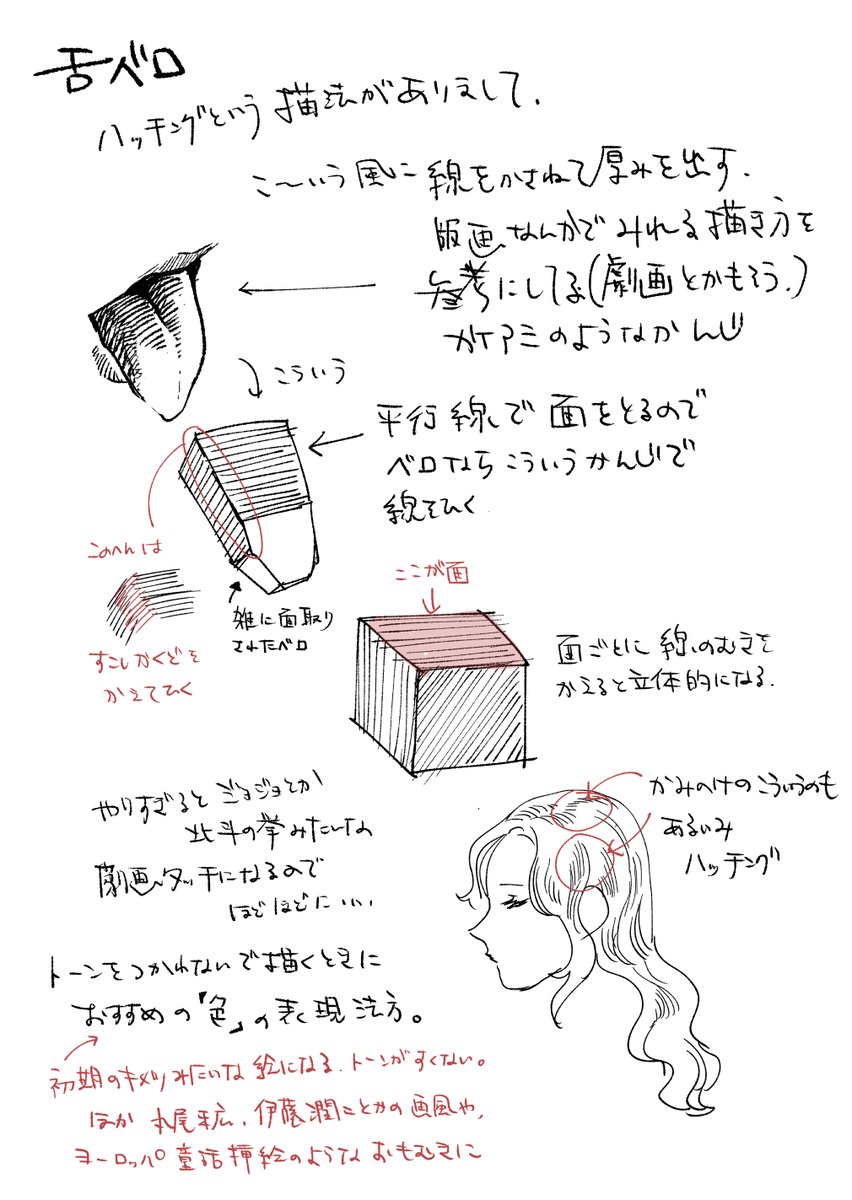 舌ベロ
ハッチングという描法がありまして.
こ〜いう風に線をかさねて厚みを出す.
版画なんかでみれる描き方を
参考にしてる(劇画とかもそう.)
カケアミのようなかんじ
こういう
平行線で面をとるので
ベロならこういうかんじで
線をひく
このへんは
すこしかくどを
かえてひく
雑に面取り
されたベロ
ここが面
面ごとに線のむきを
かえると立体的になる.
やりすぎるとジョジョとか
北斗の拳みたいな
劇画タッチになるので
ほどほどにいい
かみのけのこういうのも
あるいみ
ハッチング
トーンをつかわないで描くときに
おすすめの「色」の表現法方。
初期のキメツみたいな絵になる.トーンがすくない。
ほか 末広.伊藤潤二とかの画風や,
ヨーロッパ童話挿絵のようなおもむきに